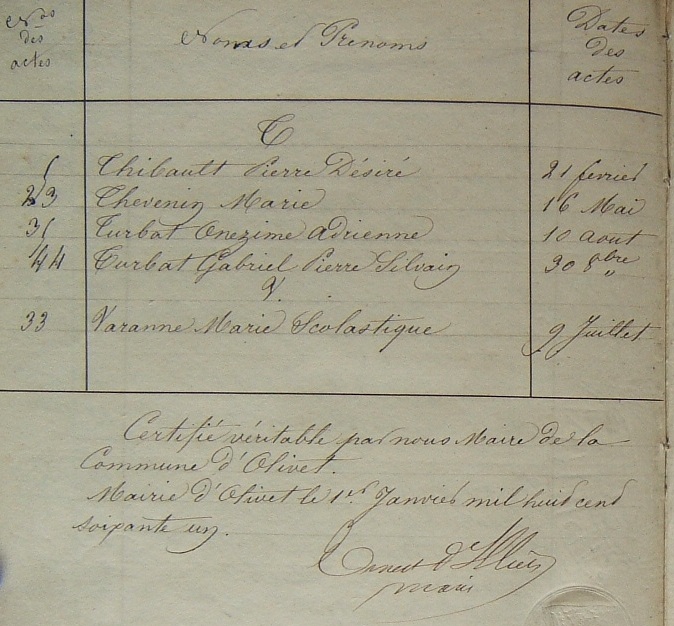 Nos des actes
Noms et Prenoms
Dates des actes
T
5 Thibault Pierre Désiré 21 fevrier
23 Thevenin Marie 16 Mai
35 Turbat Onezime Adrienne 10 aout
44 Turbat Gabriel Pierre Silvain 30 8bre „
V.
33 Varanne Marie Scolastique 9 Juillet
Certifié véritable par nous Maire de la
Commune d'Olivet.
Mairie d'Olivet le 1er Janvier mil huit cent
soixante un.
Ernest d'Illiers
maire